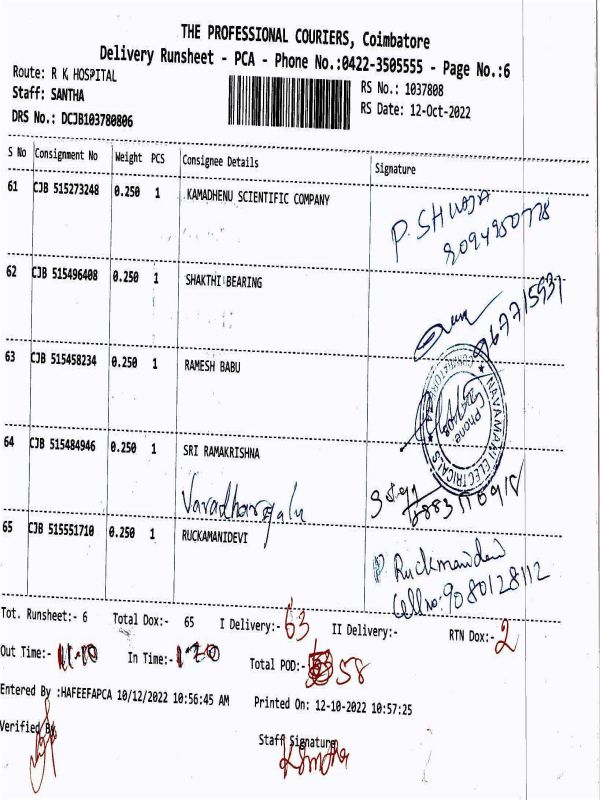 THE PROFESSIONAL COURIERS, Coimbatore
Delivery Runsheet - PCA - Phone No.:0422-3505555 - Page No.:6
Route: R K HOSPITAL
RS No.: 1037808
Staff: SANTHA
RS Date: 12-Oct-2022
DRS No.: DCJB103780806
S No Consignment No Weight PCS Consignee Details Signature
61 CJB 515273248 0.250 1 KAMADHENU SCIENTIFIC COMPANY
P. SHWAJA
8094950778
62 CJB 515496408 0.250 1 SHAKTHI BEARING
63 CJB 515458234 0.250 1 RAMESH BABU
NAVAMANI ELECTRICALS
Phone
64 CJB 515484946 0.250 1 SRI RAMAKRISHNA
Varadharajalu
65 CJB 515551710 0.250 1 RUCKAMANIDEVI
P Ruckmanidevi
Cell no: 9080128112
Tot. Runsheet:- 6 Total Dox:- 65 I Delivery:- 63 II Delivery:- RTN Dox:- 2
Out Time:- 11.10 In Time:- 1.20 Total POD:- 58
Entered By :HAFEEFAPCA 10/12/2022 10:56:45 AM Printed On: 12-10-2022 10:57:25
Verified By
Staff Signature